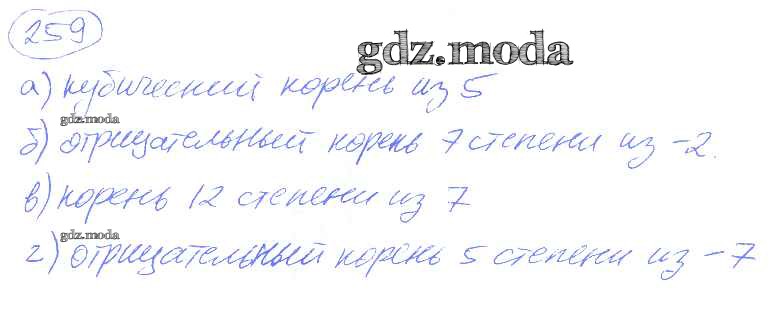 259
gdz.moda
а) кубический корень из 5
gdz.moda
б) отрицательный корень 7 степени из -2.
в) корень 12 степени из 7
gdz.moda
г) отрицательный корень 5 степени из -7